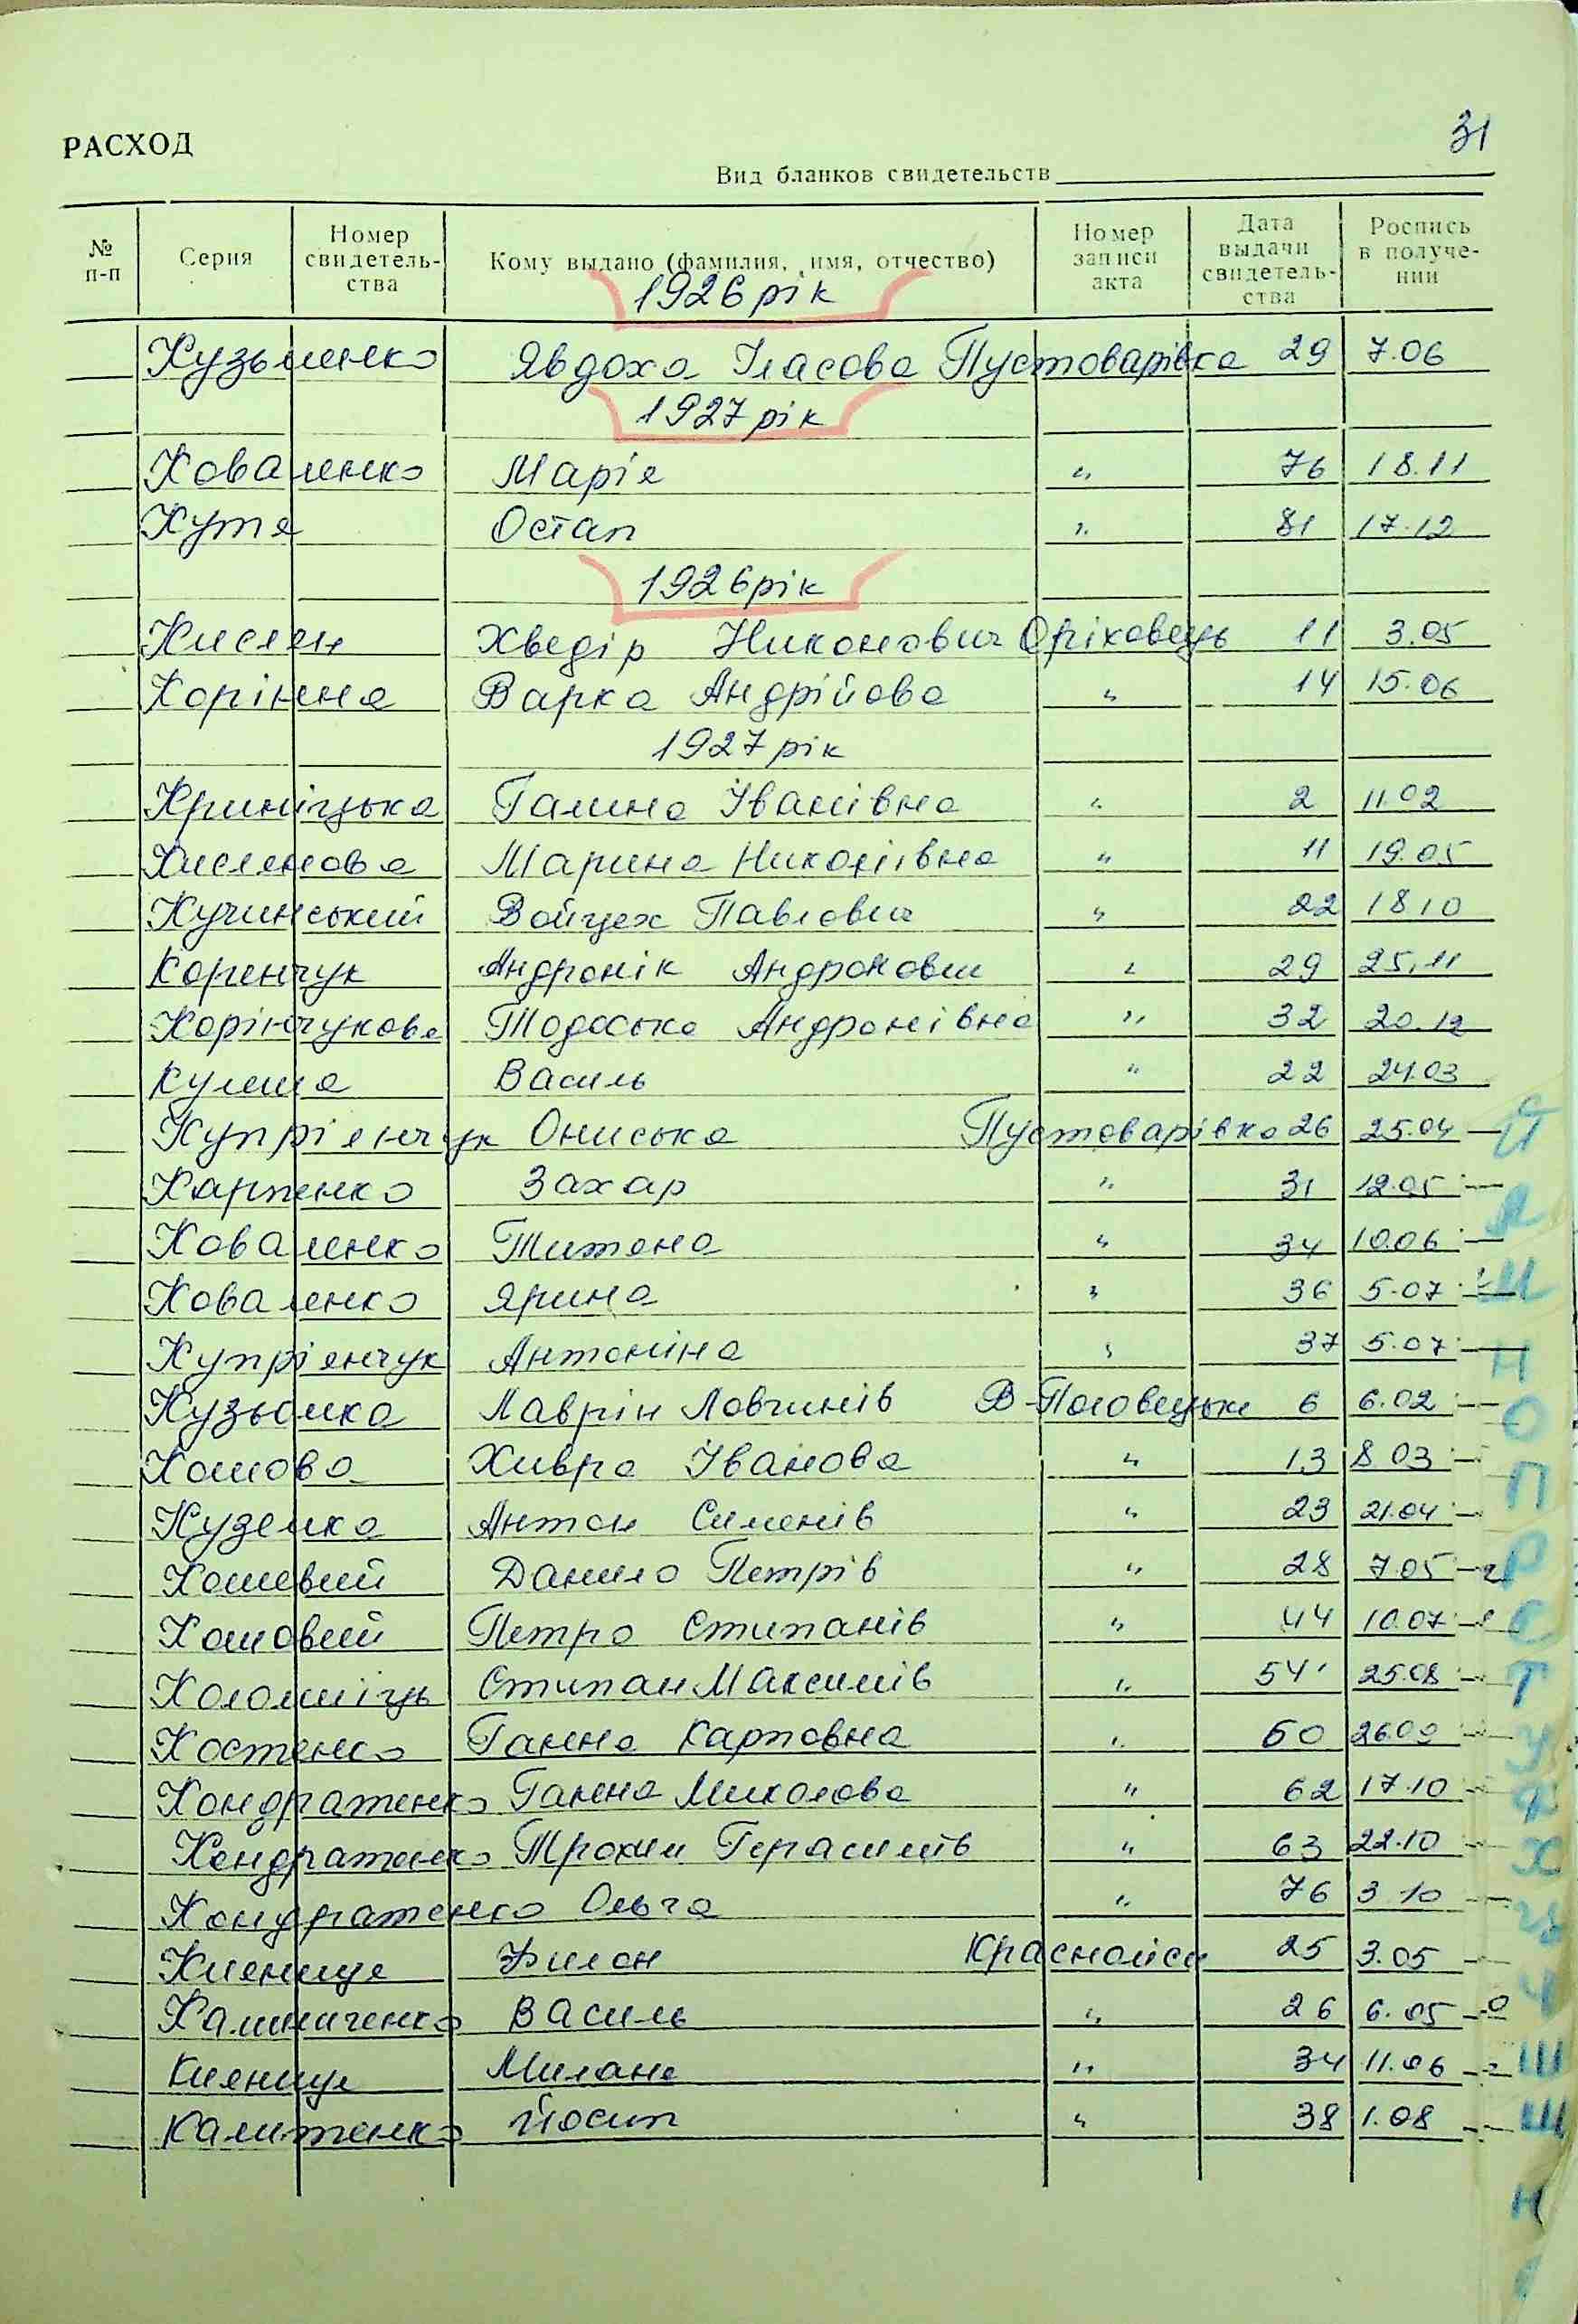 31
РАСХОД
Вид бланков свидетельств
№ п-п Серия Номер свидетель-ства Кому выдано (фамилия, имя, отчество) Номер записи акта Дата выдачи свидетель-ства Роспись в получе-нии
1926 рік
Кузьменко Явдоха Власова Пустоварівка 29 7.06
1927 рік
Коваленко Марія " 76 18.11
Кутя Остап " 81 17.12
1926 рік
Кислен Хведір Никонович Оріховець 11 3.05
Корінна Варка Андрійова " 14 15.06
1927 рік
Криніцька Галина Іванівна " 2 11.02
Кисленова Марина Никонівна " 11 19.05
Кучинський Войцех Павлович " 22 18 10
Коренчук Андронік Андронович " 29 25.11
Корінчукова Тодоська Андронівна " 32 20.12
Кулеша Василь " 22 24.03
Купріянчук Ониська Пустоварівка 26 25.04
Карпенко Захар " 31 12.05
Коваленко Титяна " 34 10.06
Коваленко Ярина " 36 5.07
Купріянчук Антоніна " 37 5.07
Кузьомка Лаврін Ловчинів В-Половецьке 6 6.02
Кошова Хивра Іванова " 13 8 03
Куземка Антон Сименів " 23 21.04
Кошевий Данило Петрів " 28 7.05
Кошовий Петро Стипанів " 44 10.07
Коломієць Стипан Максимів " 54 25.08
Костенко Ганна Карповна " 60 26.09
Кондратенко Ганна Миколова " 62 17.10
Кондратенко Трохим Герасимів " 63 22.10
Кондратенко Ольга " 76 3 10
Киениця Филон Краснолісы 25 3.05
Калиниченко Василь " 26 6.05
Киениця Милана " 34 11.06
Калитенко Йосип " 38 1.08